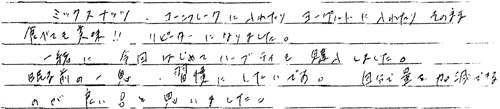 ミックスナッツ、コーンフレークに入れたりヨーグルートに入れたりそのまま
食べても美味!! リピーターになりました。
一緒に今回はじめてハーブティを購入しました。
眠る前の一息、習慣にしたいです。 自分で量を加減できる
のが良いなと思いました。